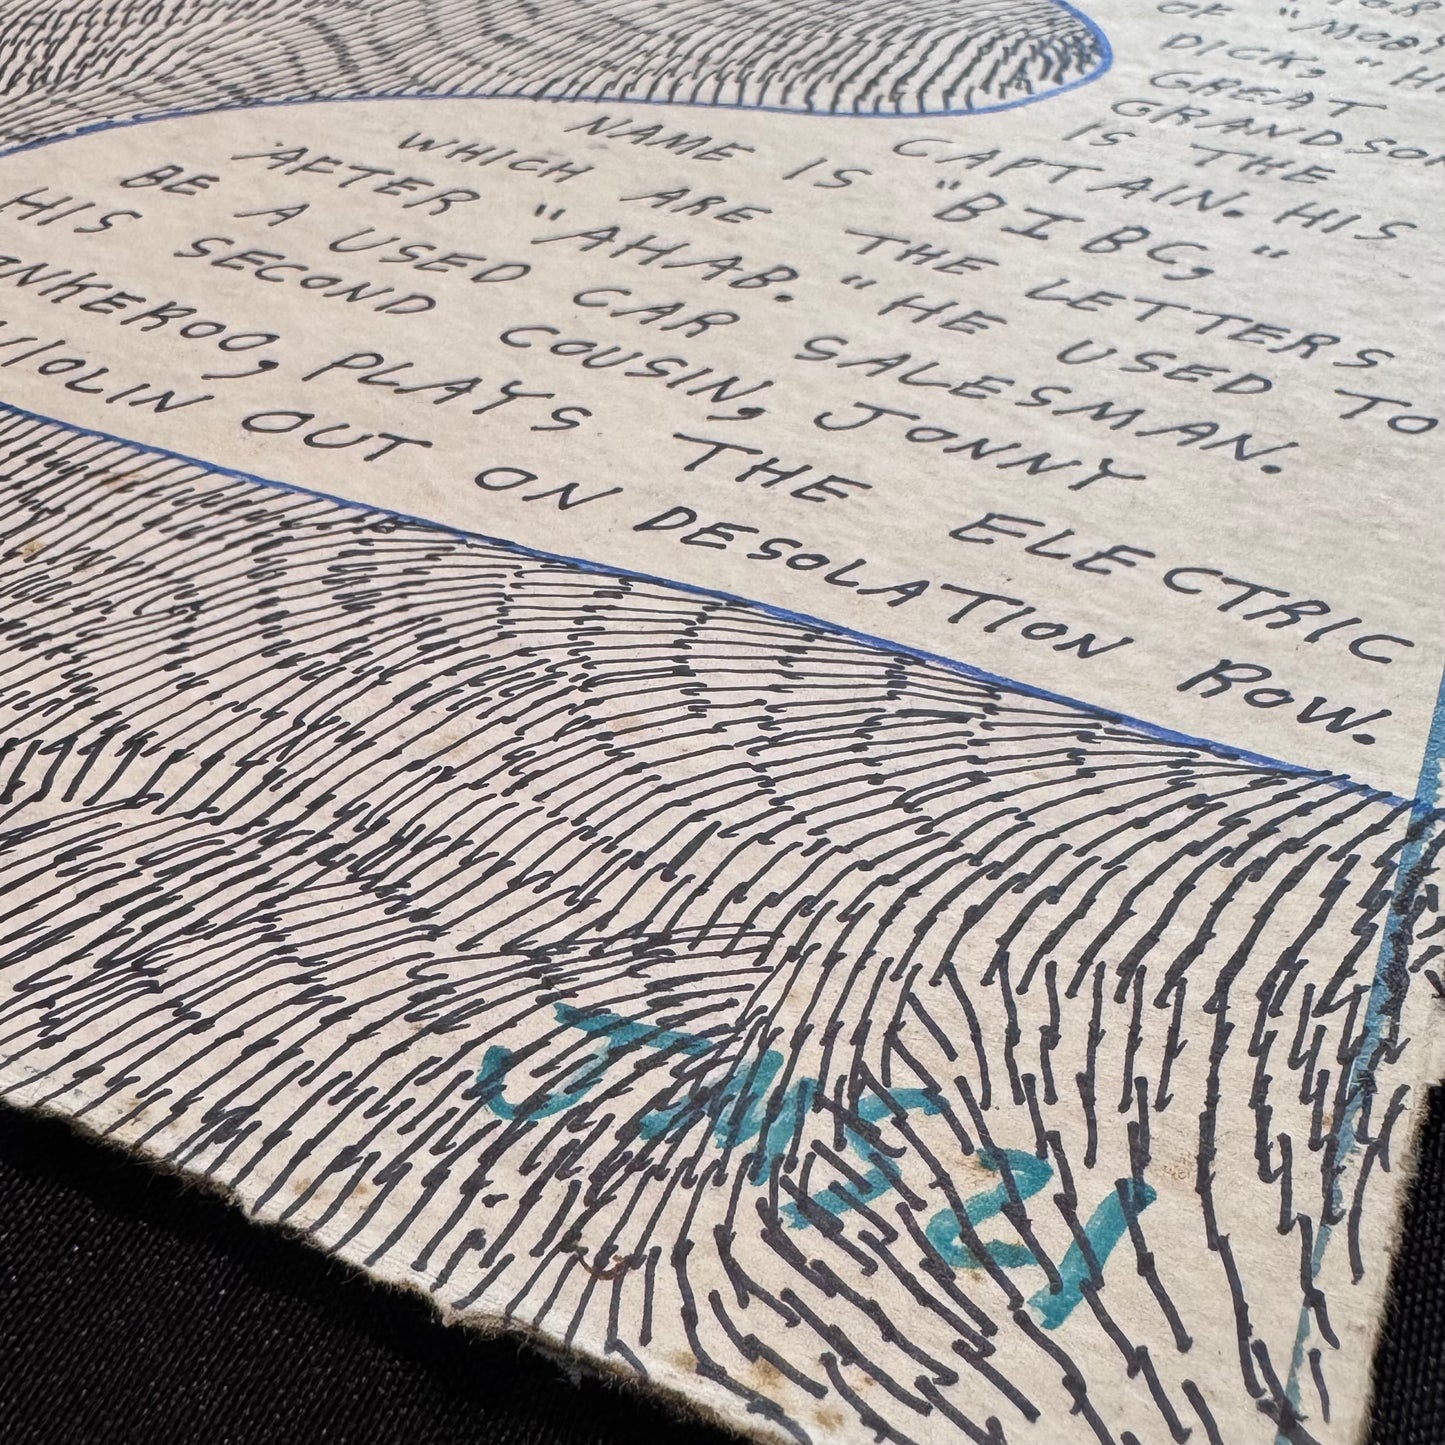 OF "MOBY
DICK,"
GREAT
GRANDSON
IS THE
CAPTAIN. HIS
NAME IS "BIBC,"
WHICH ARE THE LETTERS
AFTER "AHAB." HE USED TO
BE A USED CAR SALESMAN.
HIS SECOND COUSIN, JONNY
INKEROO, PLAYS THE ELECTRIC
VIOLIN OUT ON DESOLATION ROW.
JMS 21